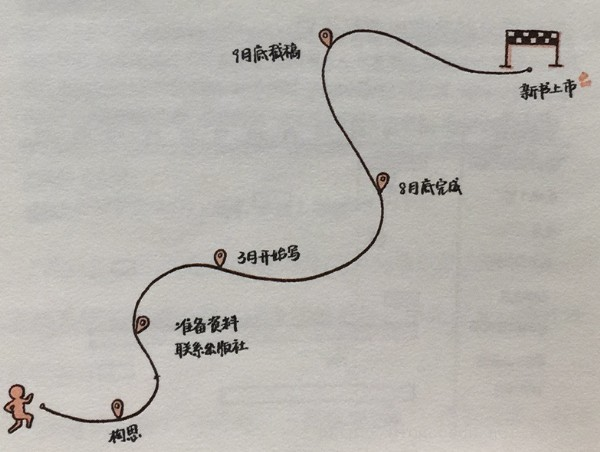 9月底截稿
新书上市
8月底完成
3月开始写
准备资料
联系出版社
构思